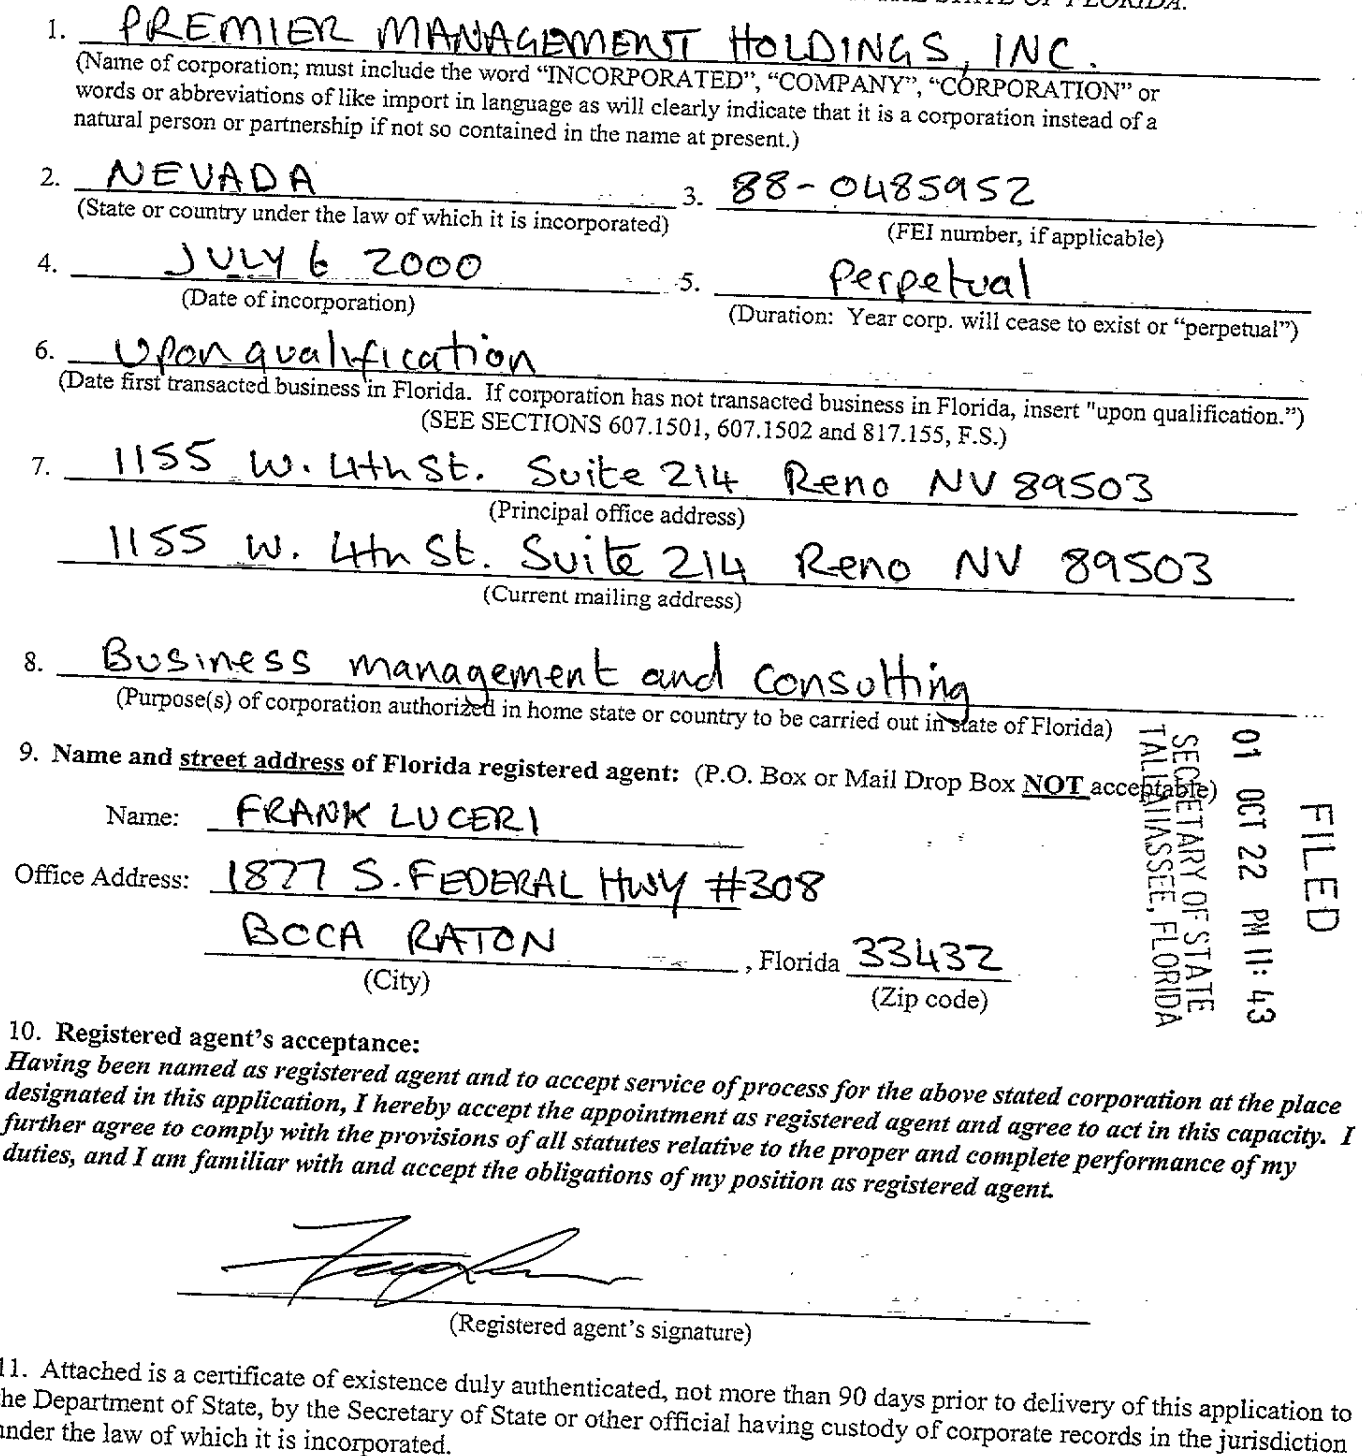 STATE OF FLORIDA.
1. PREMIER MANAGEMENT HOLDINGS, INC.
(Name of corporation; must include the word “INCORPORATED”, “COMPANY”, “CORPORATION” or
words or abbreviations of like import in language as will clearly indicate that it is a corporation instead of a
natural person or partnership if not so contained in the name at present.)
2. NEVADA 3. 88-0485952
(State or country under the law of which it is incorporated) (FEI number, if applicable)
4. JULY 6 2000 5. Perpetual
(Date of incorporation) (Duration: Year corp. will cease to exist or “perpetual”)
6. Upon qualification
(Date first transacted business in Florida. If corporation has not transacted business in Florida, insert "upon qualification.”)
(SEE SECTIONS 607.1501, 607.1502 and 817.155, F.S.)
7. 1155 W. 4th St. Suite 214 Reno NV 89503
(Principal office address)
1155 W. 4th St. Suite 214 Reno NV 89503
(Current mailing address)
8. Business management and consulting
(Purpose(s) of corporation authorized in home state or country to be carried out in state of Florida)
9. Name and street address of Florida registered agent: (P.O. Box or Mail Drop Box NOT acceptable)
Name: FRANK LUCERI
Office Address: 1877 S. FEDERAL HWY #308
BOCA RATON, Florida 33432
(City) (Zip code)
FILED
01 OCT 22 PM 11:43
SECRETARY OF STATE
TALLAHASSEE, FLORIDA
10. Registered agent’s acceptance:
Having been named as registered agent and to accept service of process for the above stated corporation at the place
designated in this application, I hereby accept the appointment as registered agent and agree to act in this capacity. I
further agree to comply with the provisions of all statutes relative to the proper and complete performance of my
duties, and I am familiar with and accept the obligations of my position as registered agent.
(Registered agent’s signature)
11. Attached is a certificate of existence duly authenticated, not more than 90 days prior to delivery of this application to
the Department of State, by the Secretary of State or other official having custody of corporate records in the jurisdiction
under the law of which it is incorporated.